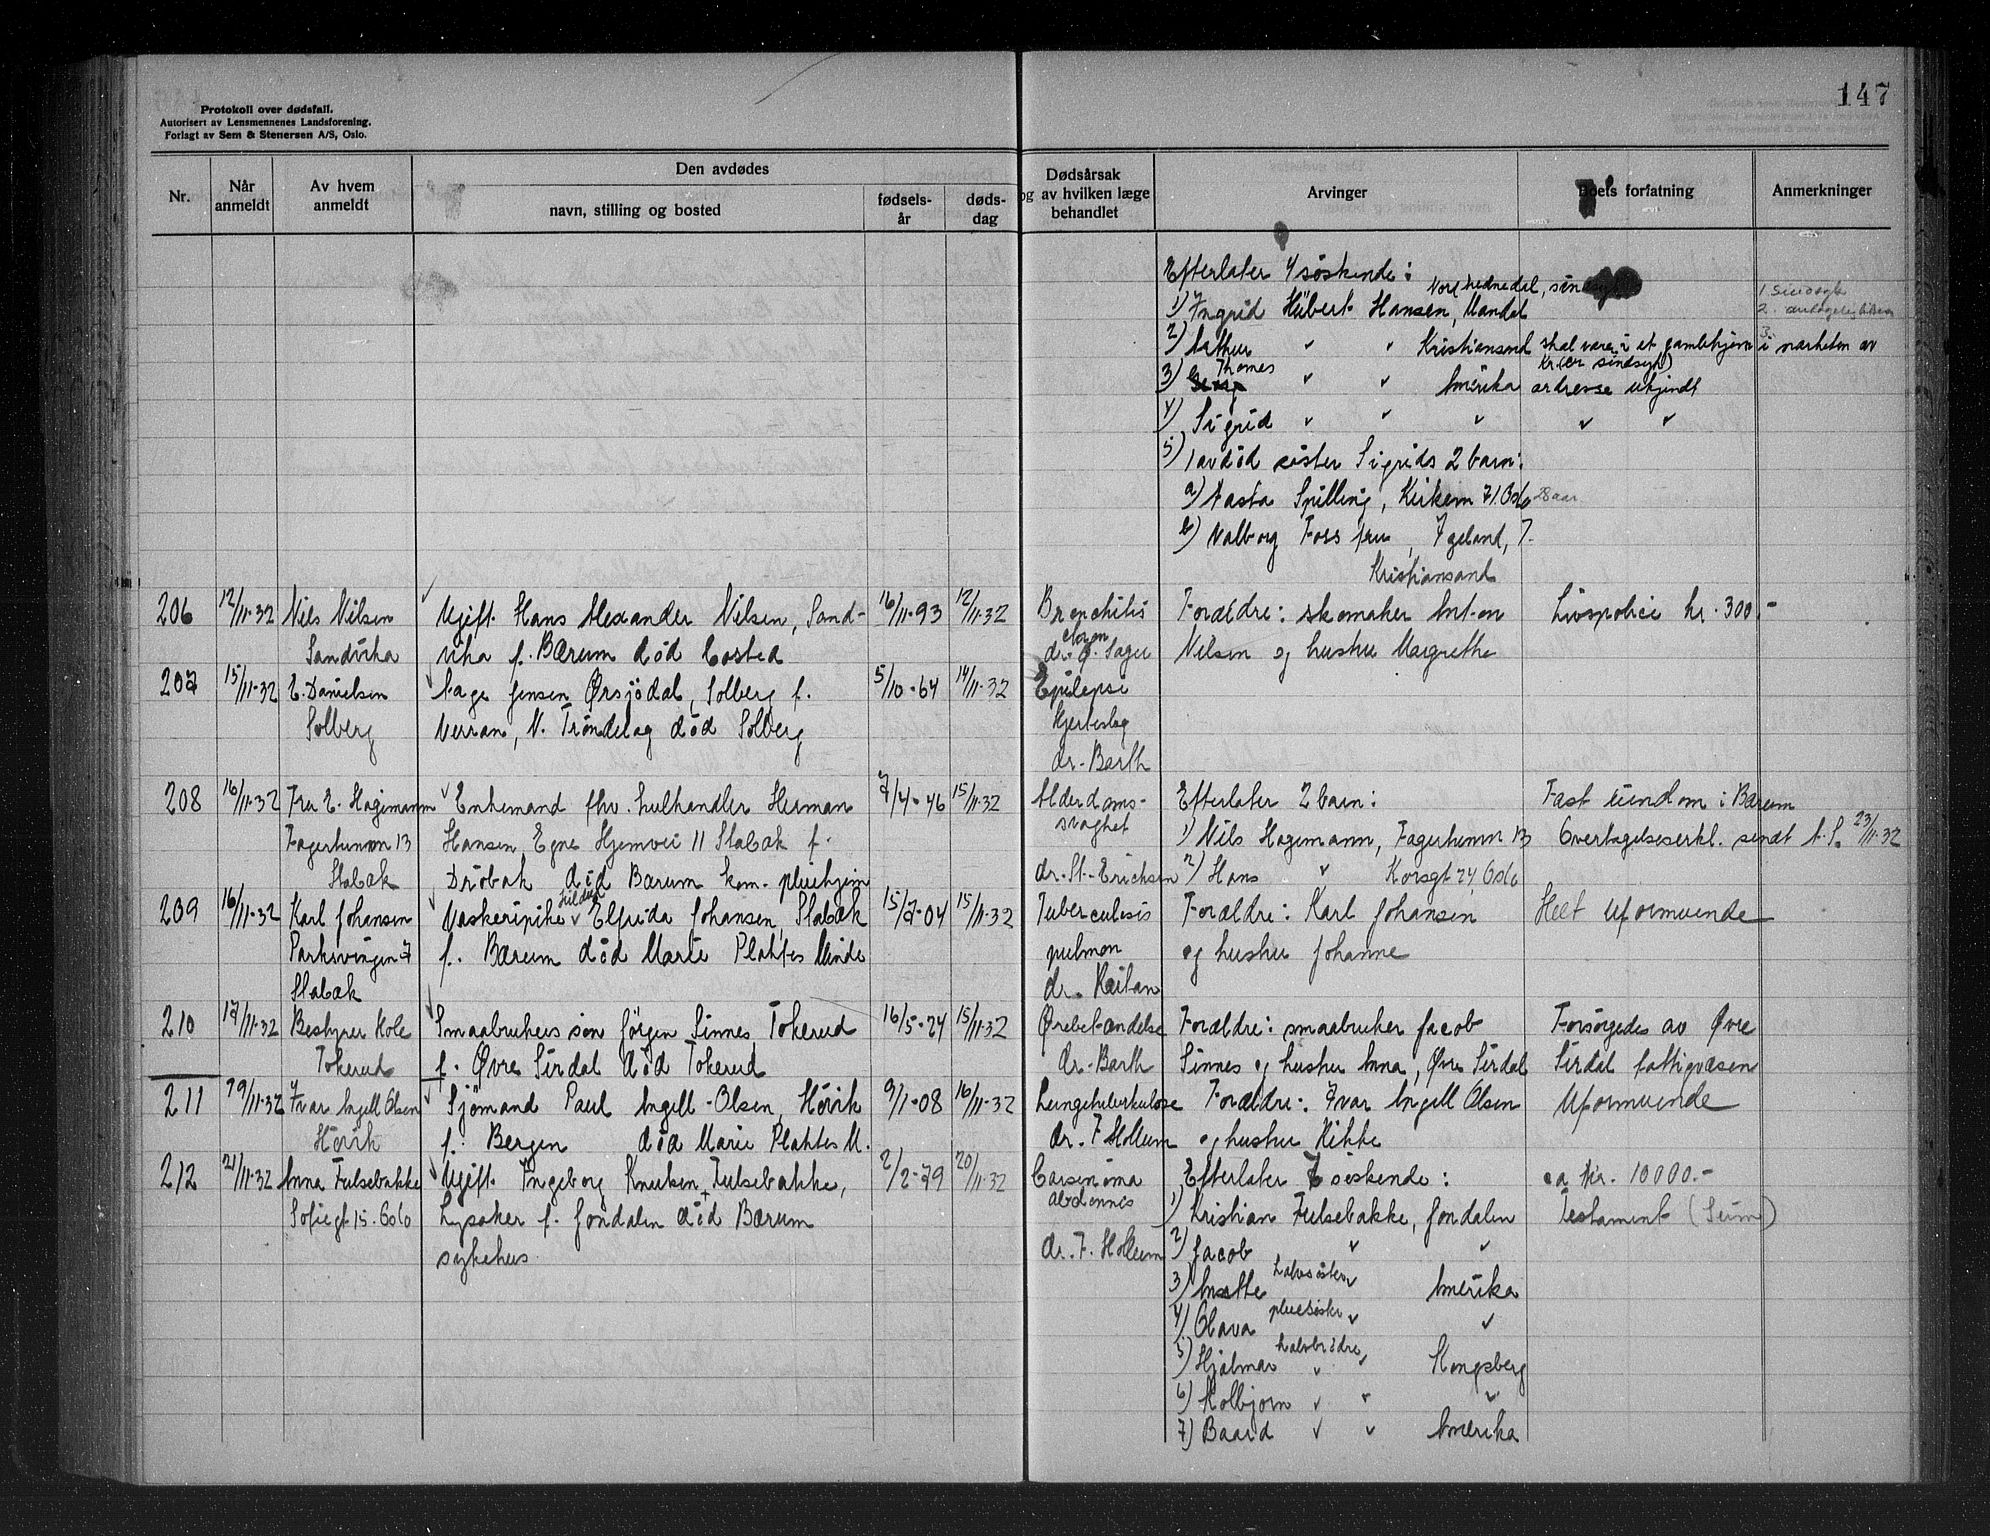 147
Protokoll over dødsfall.
Autorisert av Lensmennenes Landsforening.
Forlagt av Sem & Stenersen A/S, Oslo.
Nr.
Når anmeldt
Av hvem anmeldt
Den avdødes
navn, stilling og bosted
fødsels-år
døds-dag
Dødsårsak
og av hvilken læge
behandlet
Arvinger
Boets forfatning
Anmerkninger
Efterlater 4 søskende:
1) Ingrid Hübert Hansen, Mandal
2) Arthur " " Kristiansand skal være i et gamlehjem i nærheten av
Kr. (er sindsyk)
3) Thomas " " Amerika adresse ukjendt
4) Sigrid " " " " "
5) 1 avdød søster Sigrids 2 barn:
a) Aasta Spilling, Kirkevn 71. Oslo 28 aar
b) Valborg Foss fru,
Kristiansand
206 12/11-32 Nils Nilsen Ugift Hans Alexander Nilsen, Sand- 16/11-93 12/11-32 Bronchitis Forældre: skomaker Anton Livspolice kr. 300.-
Sandvika vika f. Bærum død bosted Nilsen og hustru Margrethe
207 15/11-32 E. Danielsen Aage Jensen Ørsjødal, Solberg f. 5/10-64 14/11-32 Epilepsi
Solberg Verran, N. Trøndelag død Solberg Hjerteslag
dr. Barth
208 16/11-32 Fru E. Hagemann Enkemand fhv. kulhandler Herman 7/4-46 15/11-32 Alderdoms- Efterlater 2 barn: Fast eiendom i Bærum
svaghet
Fagerhemn 13 Hansen, Egne Hjemvei 11 Stabæk f. 1) Nils Hagemann, Fagerhemn 13 Overtagelseserkl. sendt A.S. 23/11-32
Stabæk Drøbak død Bærum kom. pleiehjem dr. St. Erichsen 2) Hans " Korsgt 24, Oslo
209 16/11-32 Karl Johansen Vaskeripike Hildur Elfrida Johansen, Stabæk 15/7-04 15/11-32 Tuberculosis Forældre: Karl Johansen Helt uformuende
Parksvingen 7 f. Bærum død Marie Plahtes Minde pulmon og hustru Johanne
Stabæk
210 17/11-32 Bestyrer Hole Smaabrukers søn Jørgen Sinnes Tokerud 16/5-24 15/11-32 Ørebetændelse Forældre: smaabruker Jacob Forsørgedes av Øvre
Tokerud f. Øvre Sirdal død Tokerud dr. Barth Sinnes og hustru Anna, Øvre Sirdal Sirdal fattigvæsen
211 19/11-32 Ivar Angell Olsen Sjømand Paul Angell-Olsen, Høvik 9/1-08 16/11-32 Lungetuberkulose Forældre: Ivar Angell Olsen Uformuende
Høvik f. Bergen død Marie Plahtes M. dr. F. Hollum og hustru Kikke
212 21/11-32 Anna Fulsebakke Ugift Ingeborg Knutsen Fulsebakke, 2/2-79 20/11-32 Carsinoma Efterlater 7 søskende: ca kr. 10000.-
abdomnes
Sofiegt 15. Oslo Lysaker f. Jondalen død Bærum 1) Kristian Fulsebakke, Jondalen Testament
sykehus dr. F. Hollum 2) Jacob " "
3) Anette halvsøster " Amerika
4) Olava pleiesøster " "
5) Hjalmar halvbrødre " Kongsberg
6) Kolbjørn " " "
7) Baard " " Amerika